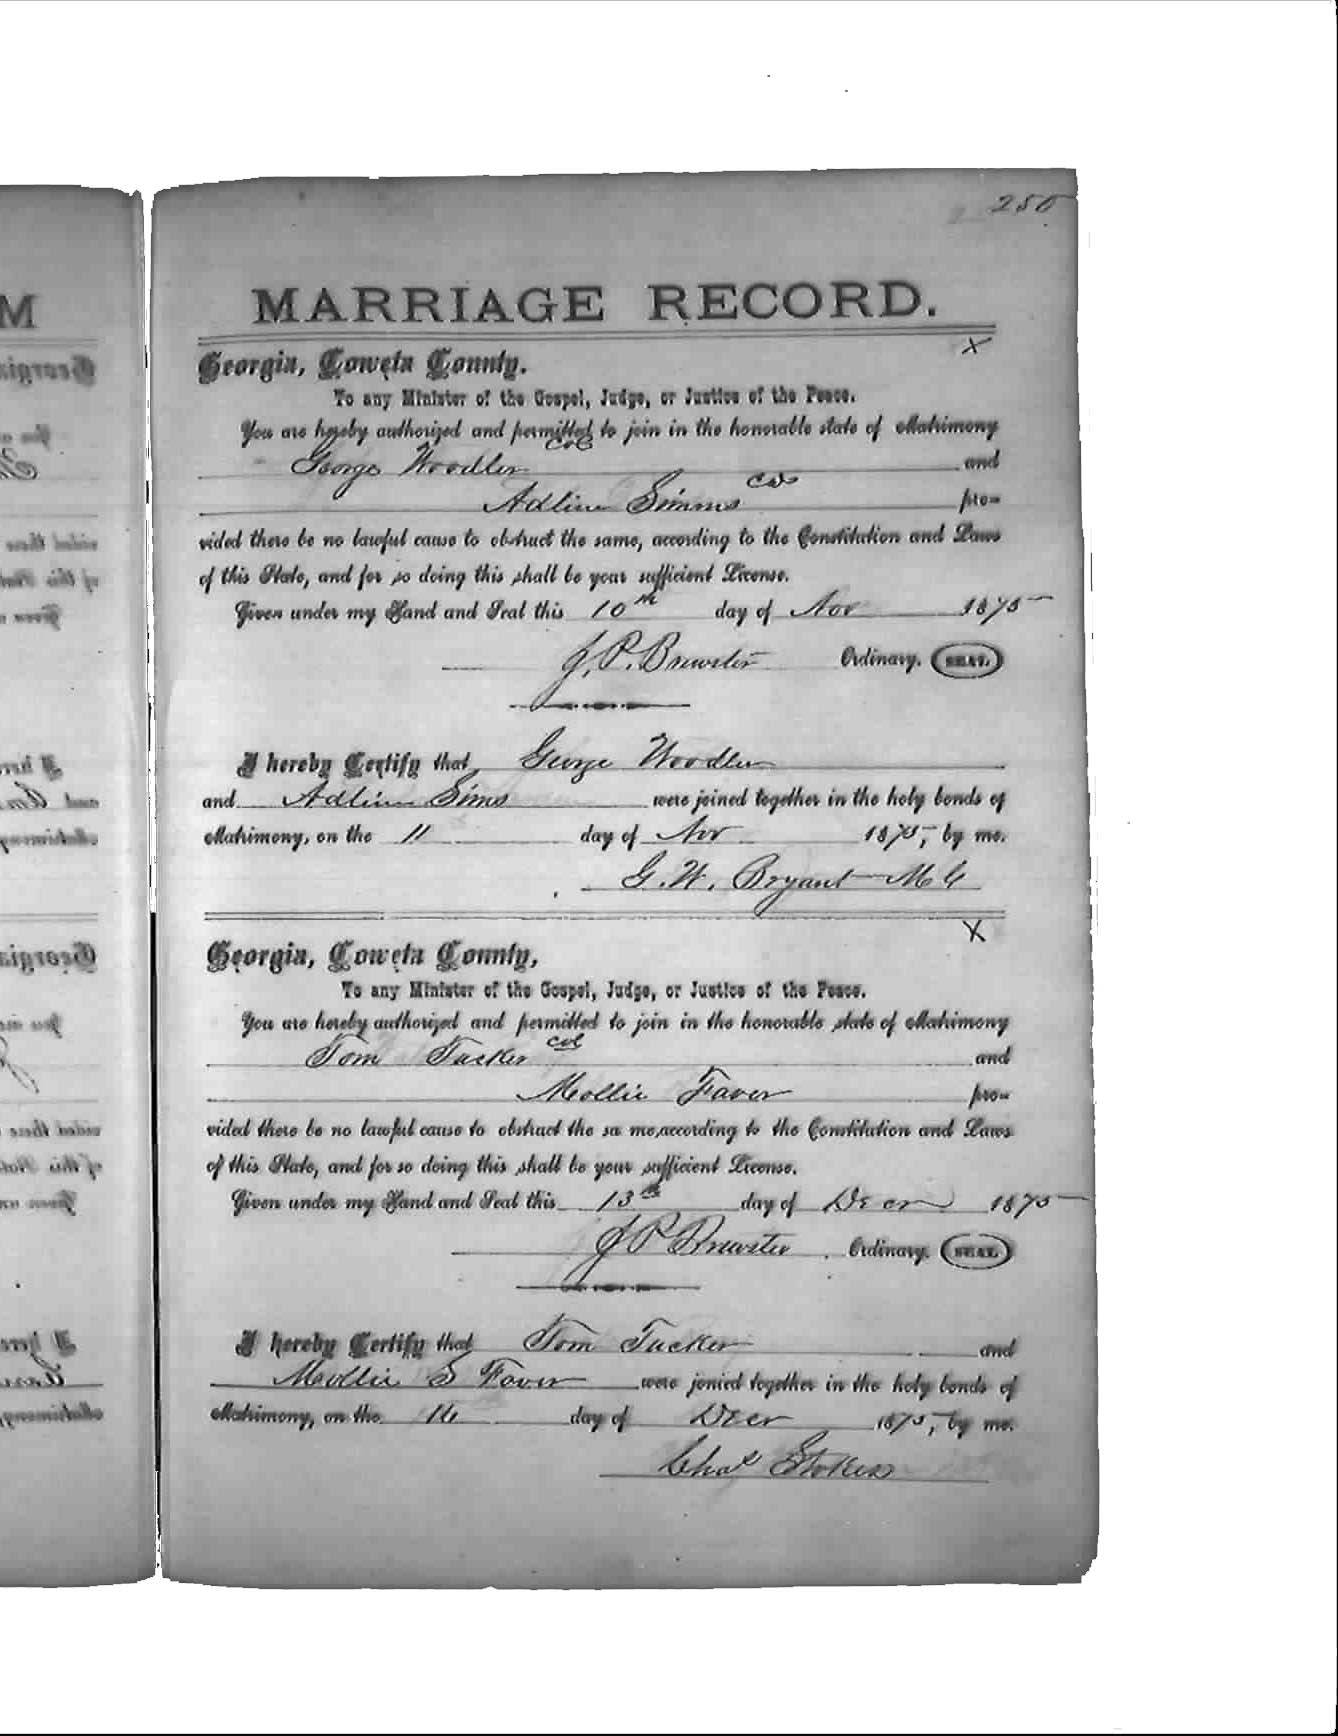 250
MARRIAGE RECORD.
X
Georgia, Coweta County.
To any Minister of the Gospel, Judge, or Justice of the Peace.
You are hereby authorized and permitted to join in the honorable state of Matrimony
George Woodler col and
Adline Simms col pro=
vided there be no lawful cause to obstruct the same, according to the Constitution and Laws
of this State, and for so doing this shall be your sufficient License.
Given under my Hand and Seal this 10th day of Nov 1875
J. P. Brewster Ordinary. SEAL.
I hereby Certify that George Woodler
and Adline Sims were joined together in the holy bonds of
Matrimony, on the 11 day of Nov 1875, by me.
G. W. Bryant M G
X
Georgia, Coweta County,
To any Minister of the Gospel, Judge, or Justice of the Peace.
You are hereby authorized and permitted to join in the honorable state of Matrimony
Tom Tucker col and
Mollie Faver pro=
vided there be no lawful cause to obstruct the sa me, according to the Constitution and Laws
of this State, and for so doing this shall be your sufficient License.
Given under my Hand and Seal this 13th day of Decr 1875
J P Brewster Ordinary. SEAL.
I hereby Certify that Tom Tucker and
Mollie S Faver were jonied together in the holy bonds of
Matrimony, on the day of Decr 1875, by me.
Chas Stokes